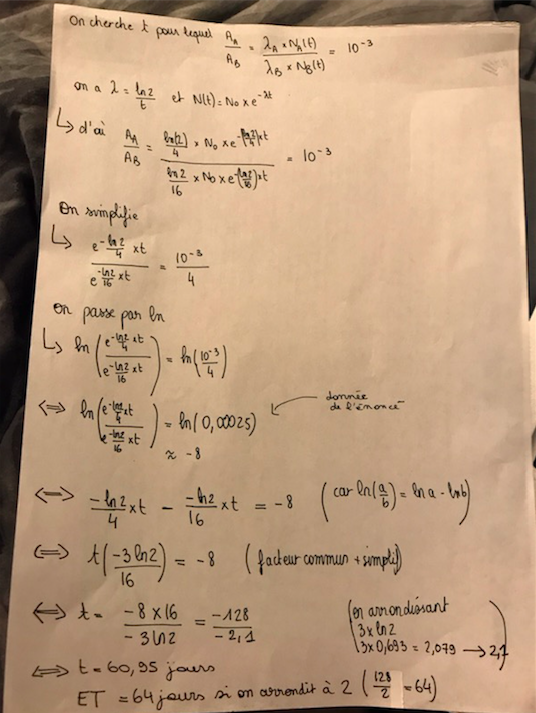 On cherche t pour lequel A_A / A_B = λ_A × N_A(t) / λ_B × N_B(t) = 10⁻³
on a λ = ln2 / t et N(t) = No × e^-λt
↳ d'où A_A / A_B = ln(2)/4 × No × e^-(ln2/4)×t / ln2/16 × No × e^-(ln2/16)×t = 10⁻³
On simplifie
↳ e^-ln2/4 ×t / e^-ln2/16 ×t = 10⁻³ / 4
On passe par ln
↳ ln ( e^-ln2/4 ×t / e^-ln2/16 ×t ) = ln ( 10⁻³ / 4 )
⇔ ln ( e^-ln2/4 ×t / e^-ln2/16 ×t ) = ln ( 0,00025 ) ← donnée de l'énoncé
≈ -8
⇔ -ln2/4 × t - -ln2/16 × t = -8 ( car ln(a/b) = ln a - ln b )
⇔ t ( -3 ln2 / 16 ) = -8 ( facteur commun + simplif )
⇔ t = -8 × 16 / -3 ln2 = -128 / -2,1 ( en arrondissant
3 × ln2
3 × 0,693 = 2,079 → 2,1 )
⇔ t = 60,95 jours
ET = 64 jours si on arrondit à 2 ( 128/2 = 64 )